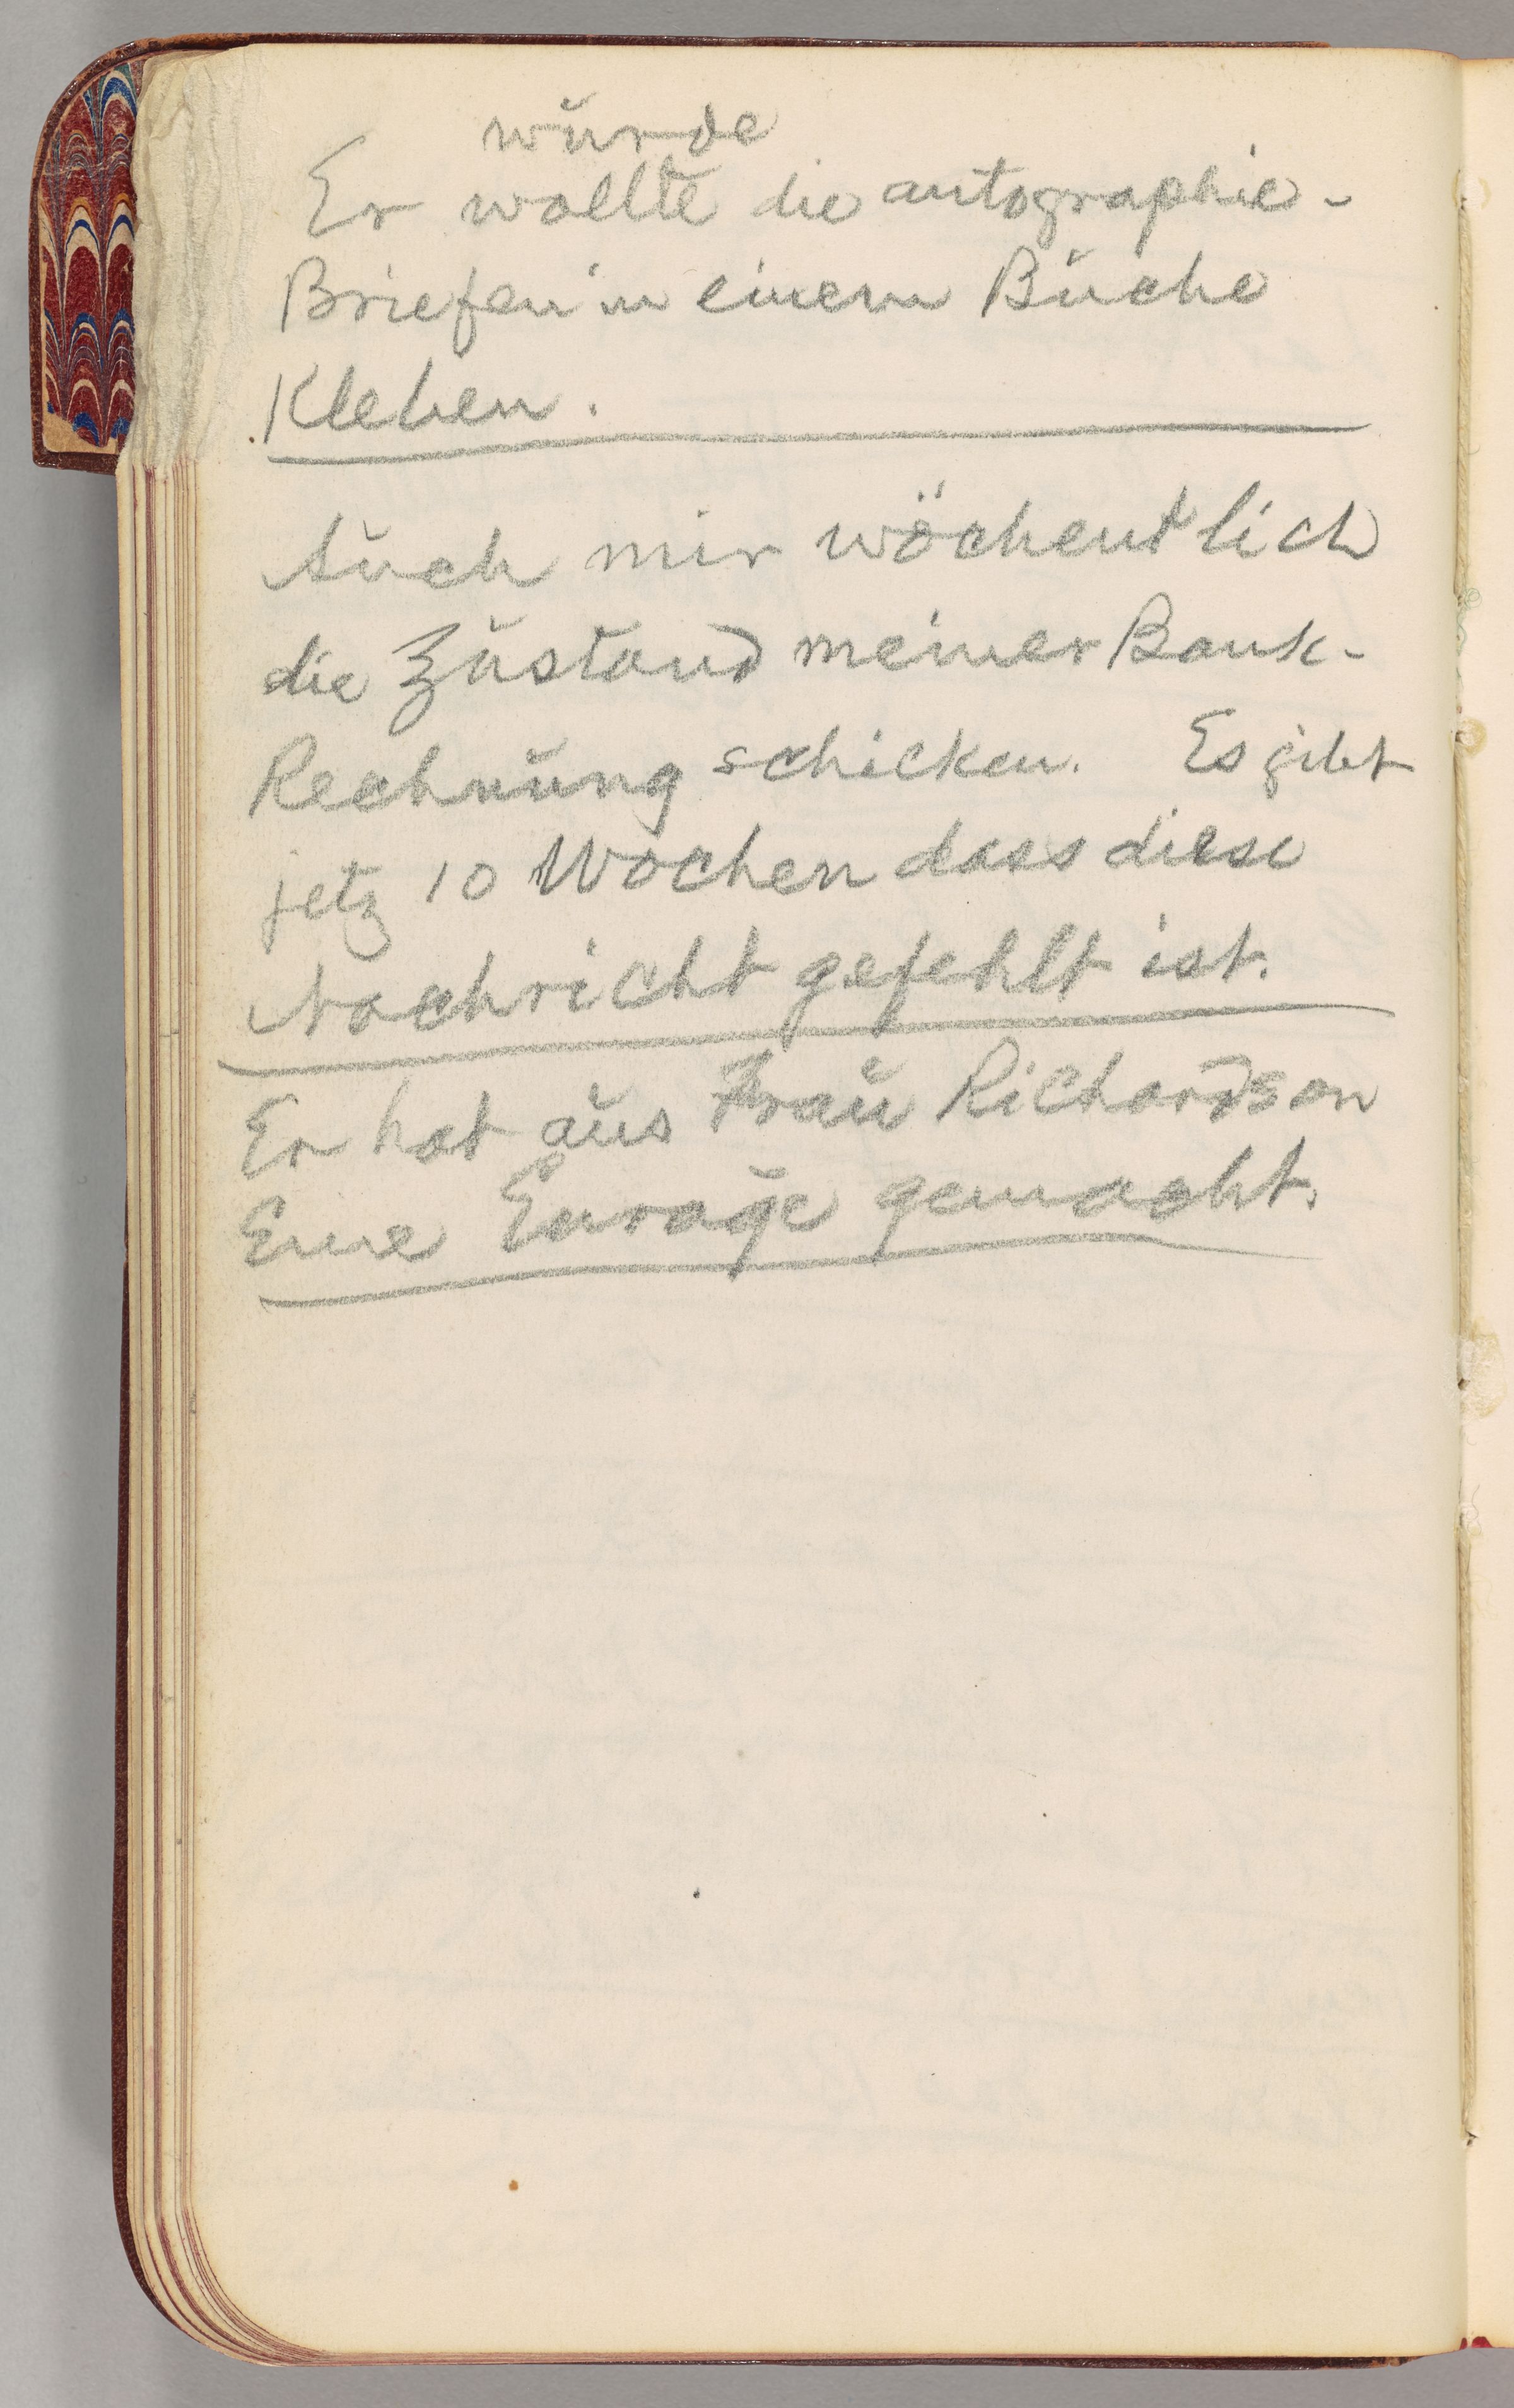 würde
Er wollte die autographie-
Briefen in einem Buche
Kleben.
Auch mir wöchentlich
die Zustand meiner Bank-
Rechnung schicken. Es gibt
jetz 10 Wochen dass diese
Nachricht gefehlt ist.
Er hat aus Frau Richardson
Eine Enragée gemacht.